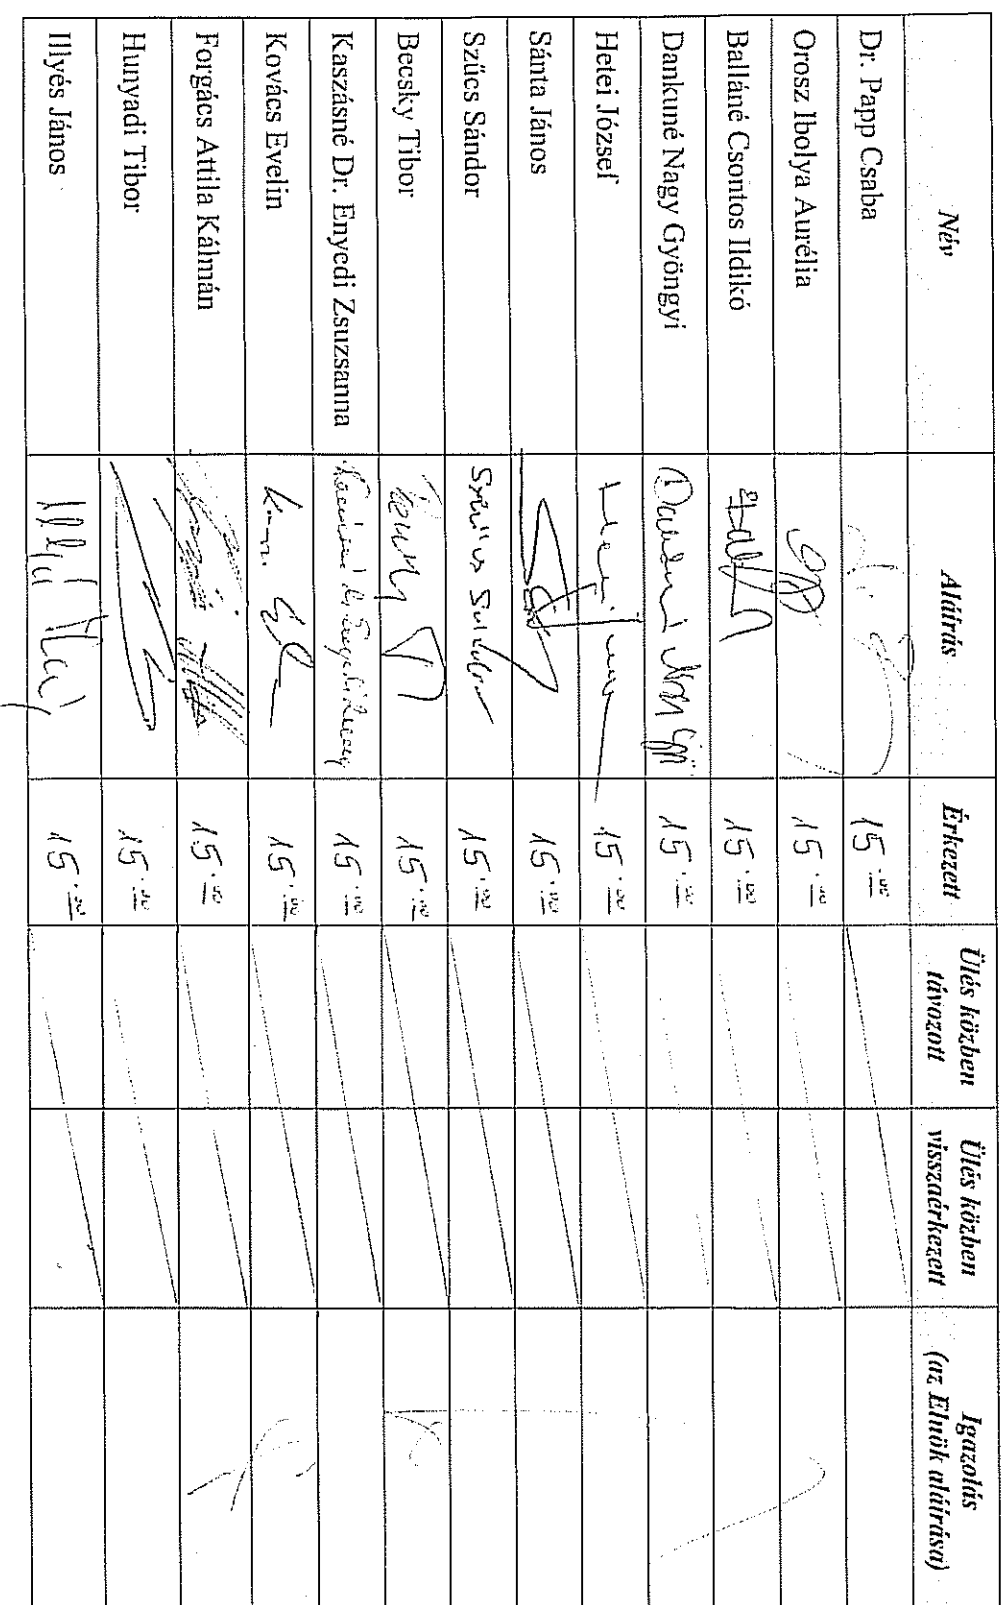 Név Aláírás Érkezett Ülés közben távozott Ülés közben visszaérkezett Igazolás (az Elnök aláírása)
Dr. Papp Csaba 15.00
Orosz Ibolya Aurélia 15.00
Balláné Csontos Ildikó 15.00
Dankuné Nagy Gyöngyi 15.00
Hetei József 15.00
Sánta János 15.00
Szűcs Sándor Szűcs Sándor 15.00
Becsky Tibor 15.00
Kaszásné Dr. Enyedi Zsuzsanna 15.00
Kovács Evelin 15.00
Forgács Attila Kálmán 15.00
Hunyadi Tibor 15.00
Illyés János 15.00